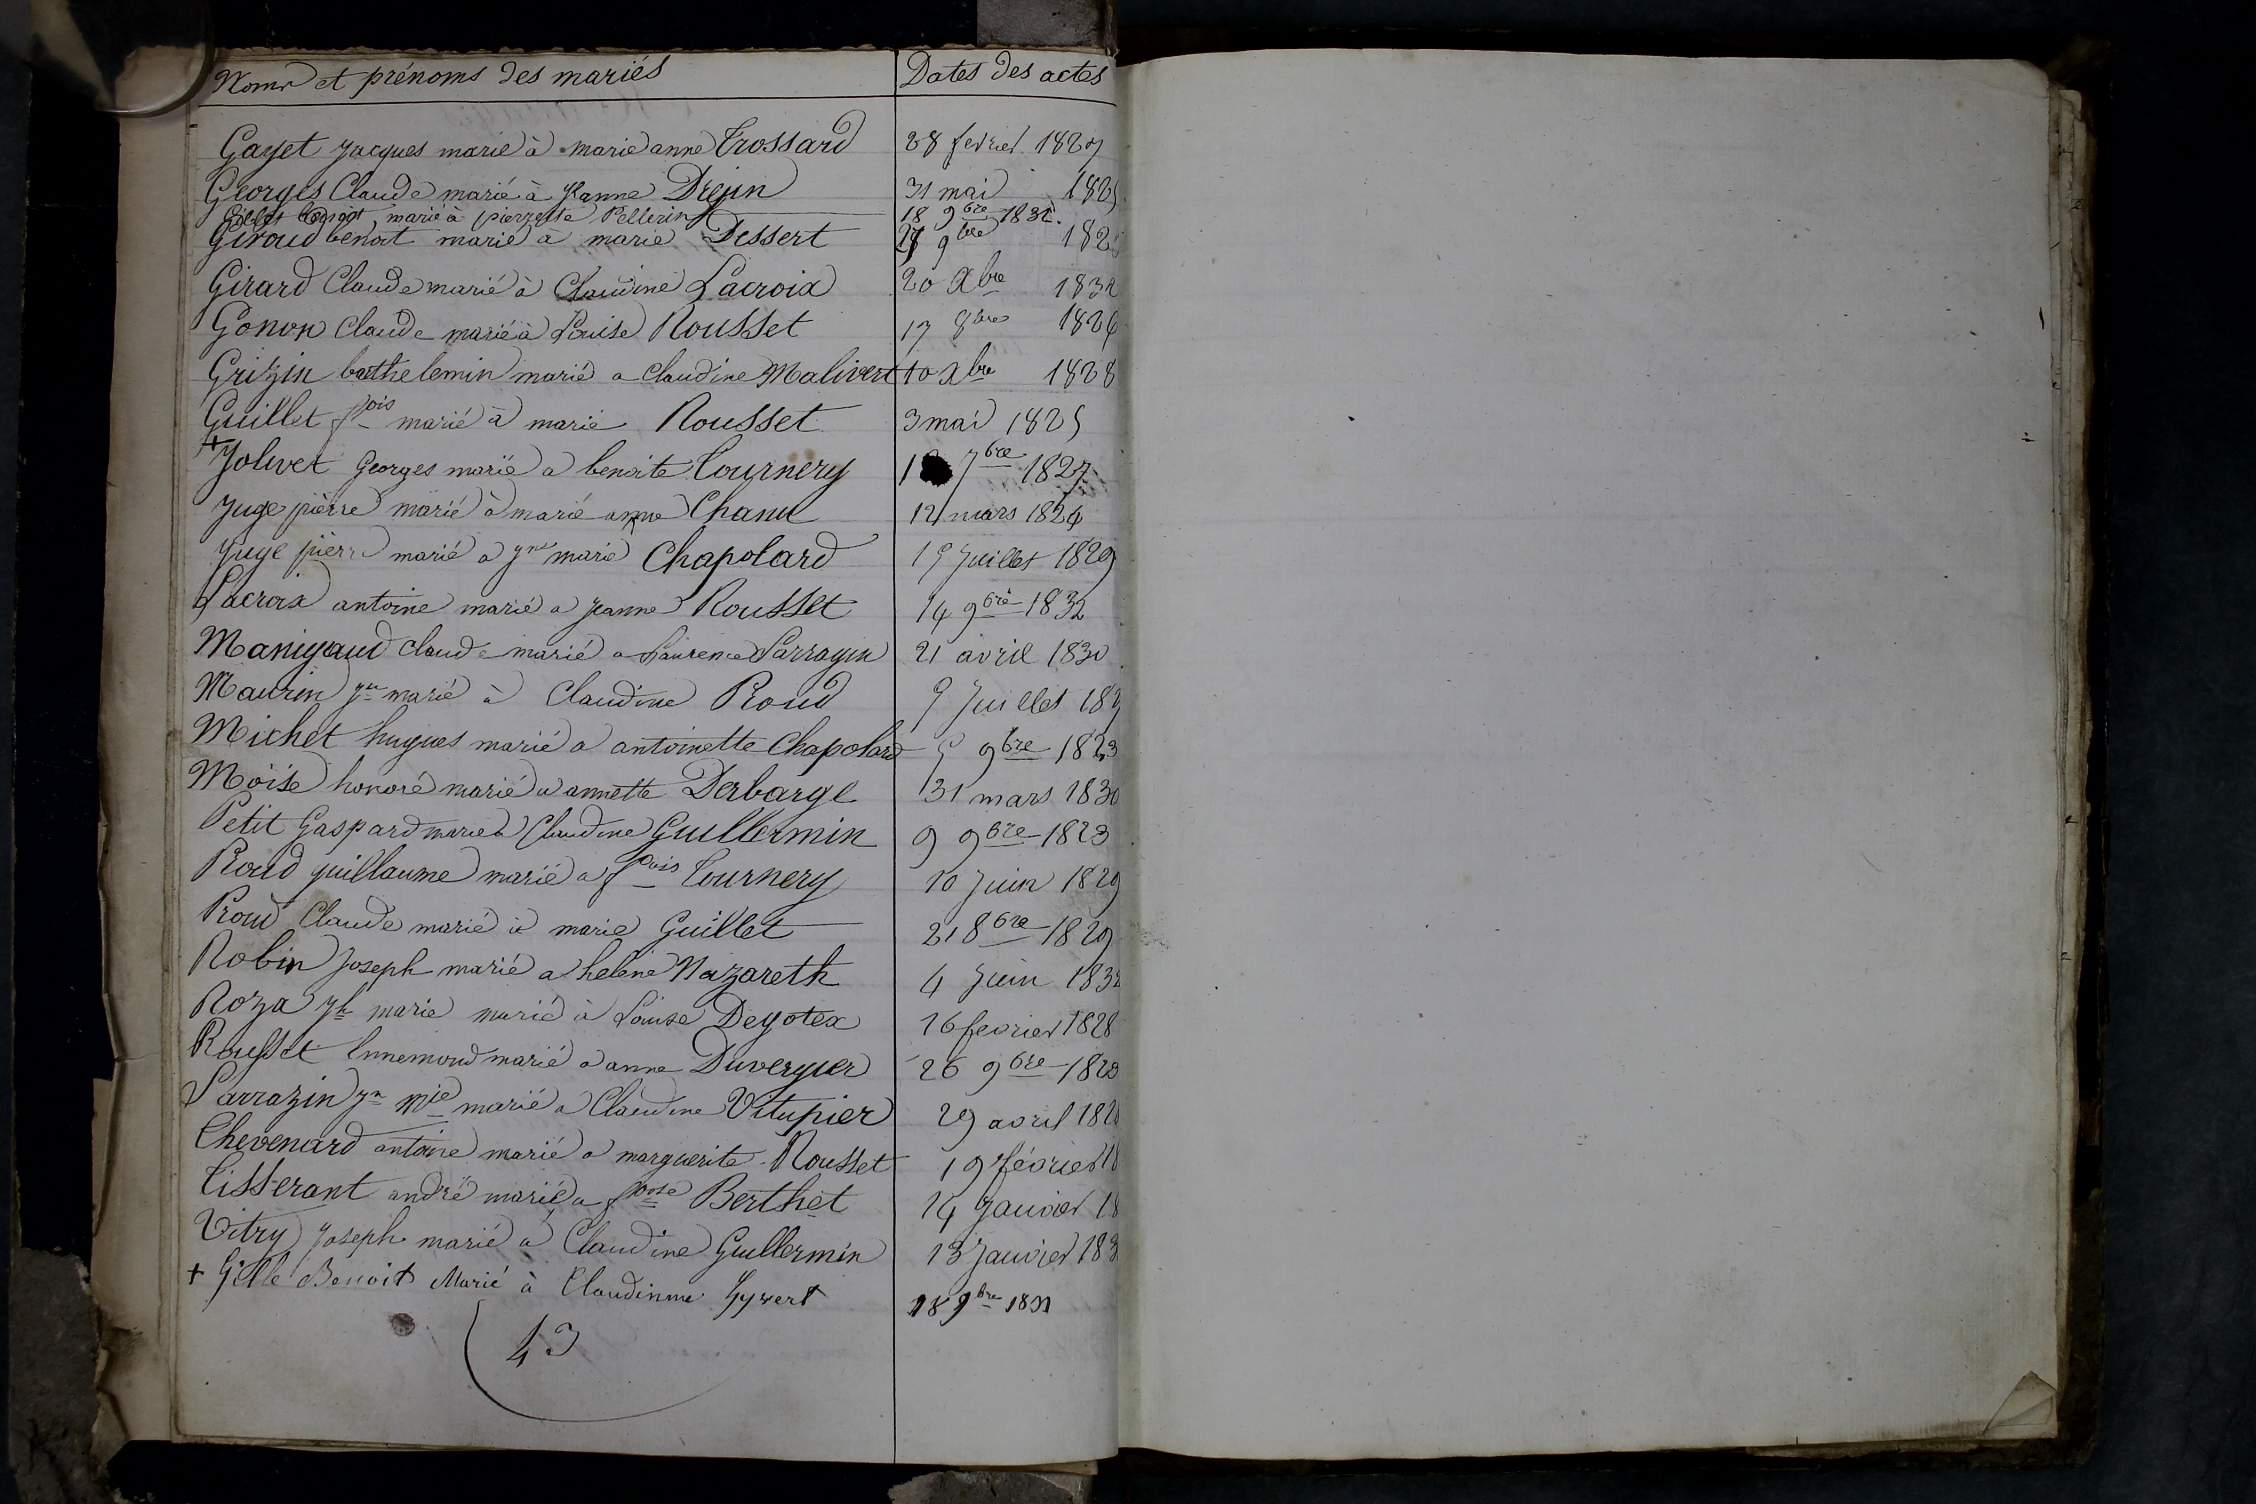 Noms et prénoms des mariés Dates des actes
Gayet Jacques marié à marie anne Trossard 28 fevrier 1827
Georges Claude marié à Jeanne Drejin 31 mai 182
marié à pierrette Pellerin 18 9bre 1832.
Giroud benoit marié à marie Dessert 27 9bre 182
Girard Claude marié à Claudine Lacroix 20 Xbre 1832
Gonon Claude marié à Louise Rousset 17 8bre 1824
Grizin barthelemin marié a claudine Malivert 10 Xbre 1828
Guillet fois marié à marie Rousset 3 mai 1825
+ Jolivet Georges marié a benoite Tournery 7bre 1827.
Juge pierre marié à marie anne Chanu 12 mars 1824
Juge pierre marié a jne marie Chapolard 15 Juillet 1829
Lacroix antoine marié a Jeanne Rousset 14 9bre 1832
Manigaud Claude marié a Laurence Sarrazin 21 avril 1830
Maurin marié à Claudine Proud 9 Juillet 182
Michet hugues marié a antoinette Chapolard 5 9bre 1823
Moïse honoré marié a annette Derbarge 31 mars 1830
Petit Gaspard marié à Claudine Guillermin 9 9bre 1823
Proud guillaume marié a fois Tournery 10 Juin 1829
Proud Claude marié à marie Guillet 21 8bre 1829
Robin Joseph marié a helène Nazareth 4 Juin 1832
Roza Jh marie marié à Louise Deyotex 16 fevrier 1828
Rousset Ennemond marié a anne Duvergier 26 9bre 1828
Sarrazin Jn mie marié a Claudine Vitupier 29 avril 182
Thevenard antoine marié a marguerite Rousset 19 février 18
Tisserant andré marié a foise Berthet 14 Janvier 18
Vitry Joseph marié à Claudine Guillermin 13 Janvier 183
+ Gille Benoit Marié à Claudinne Gyvert 18 9bre 1831
43